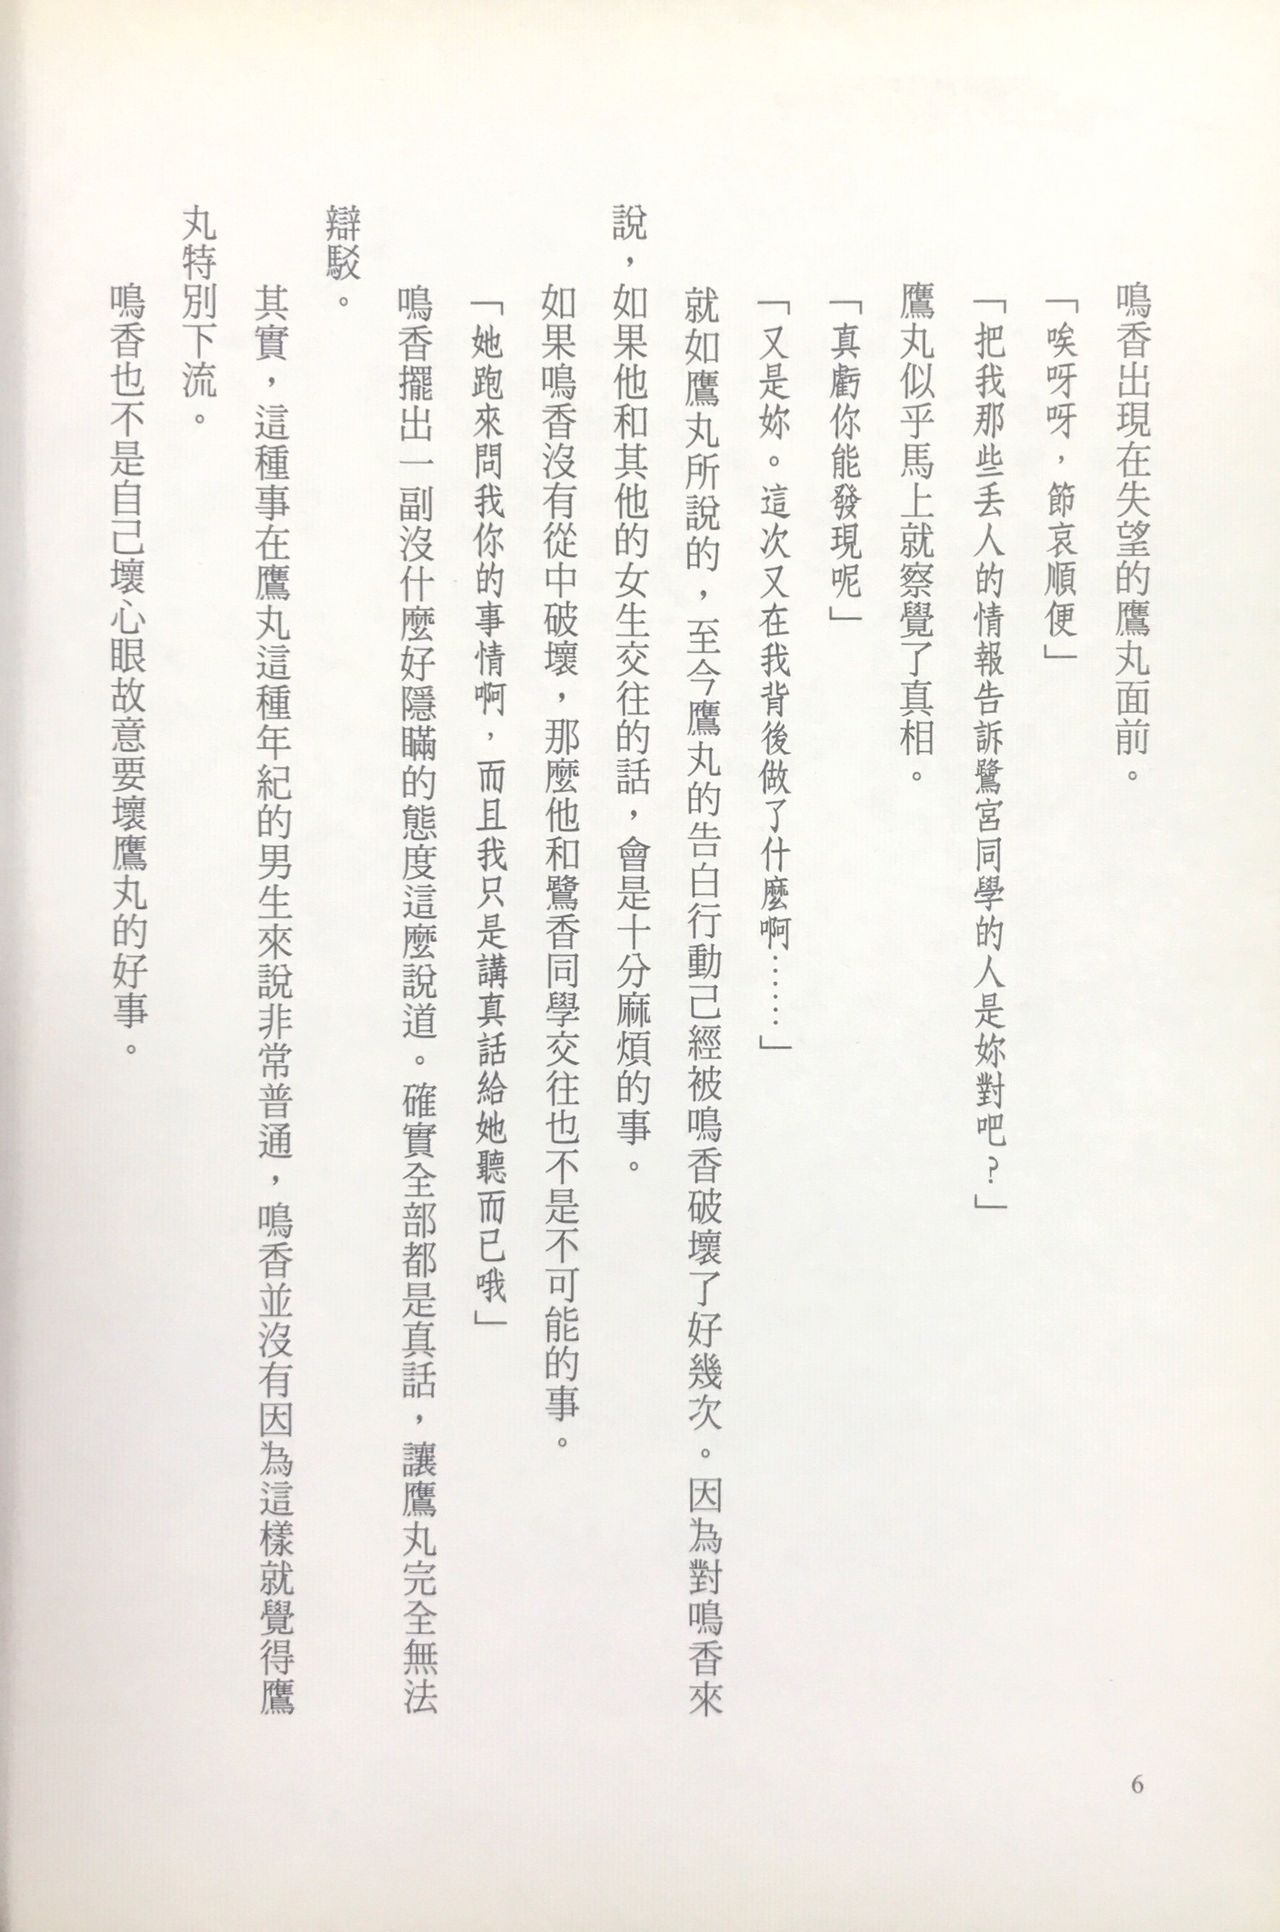 鳴香出現在失望的鷹丸面前。
「唉呀呀，節哀順便」
「把我那些丟人的情報告訴鷺宮同學的人是妳對吧?」
鷹丸似乎馬上就察覺了真相。
「真虧你能發現呢」
「又是妳。這次又在我背後做了什麼啊……」
就如鷹丸所說的，至今鷹丸的告白行動己經被鳴香破壞了好幾次。因為對鳴香來
說，如果他和其他的女生交往的話，會是十分麻煩的事。
如果鳴香沒有從中破壞，那麼他和鷺香同學交往也不是不可能的事。
「她跑來問我你的事情啊，而且我只是講真話給她聽而已哦」
鳴香擺出一副沒什麼好隱瞞的態度這麼說道。確實全部都是真話，讓鷹丸完全無法
辯駁。
其實，這種事在鷹丸這種年紀的男生來說非常普通，鳴香並沒有因為這樣就覺得鷹
丸特別下流。
鳴香也不是自己壞心眼故意要壞鷹丸的好事。
6